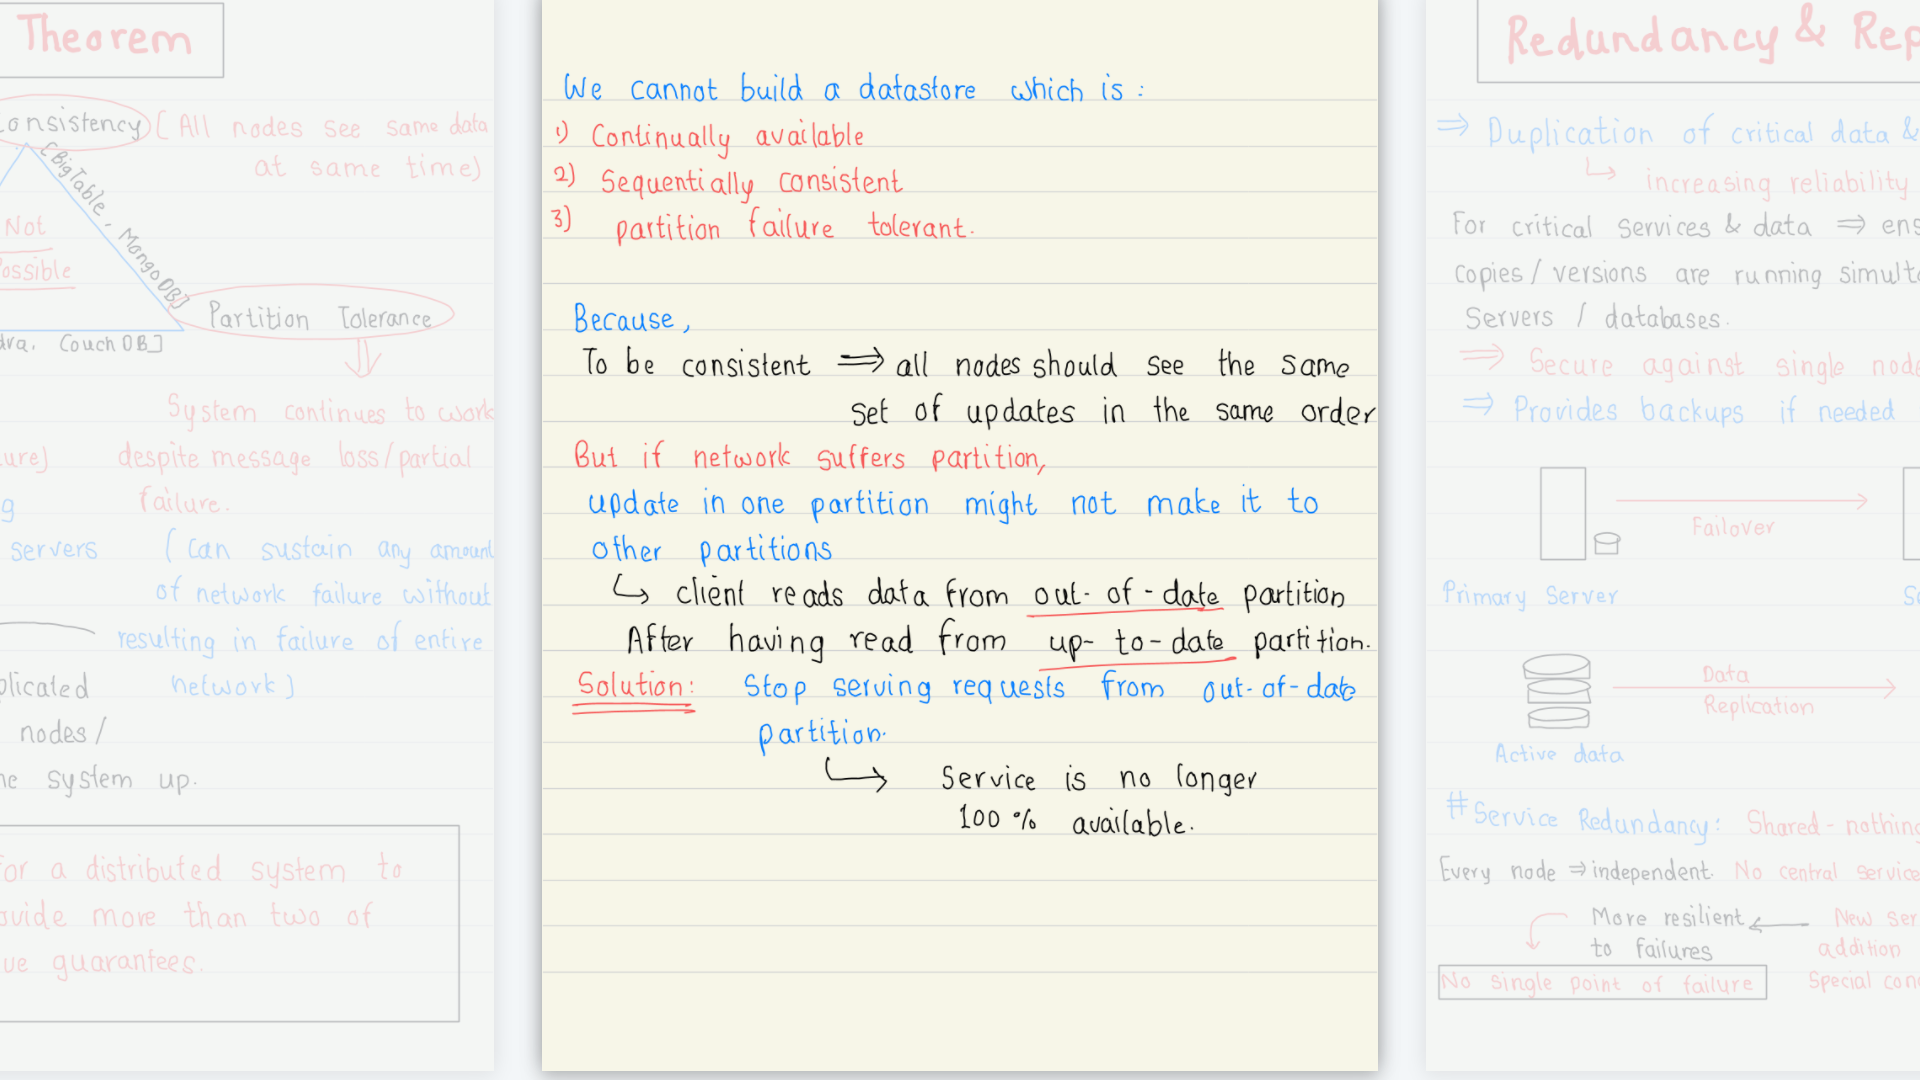 Theorem
Consistency [All nodes see same data
at same time)
[BigTable, MongoDB]
Not
Possible
Partition Tolerance
dra, CouchDB]
System continues to work
ure) despite message loss/partial
g failure.
servers (can sustain any amount
of network failure without
resulting in failure of entire
plicated network)
nodes/
he system up.
for a distributed system to
ovide more than two of
ve guarantees.
We cannot build a datastore which is:
1) Continually available
2) Sequentially consistent
3) partition failure tolerant.
Because,
To be consistent ⇒ all nodes should see the same
set of updates in the same order
But if network suffers partition,
update in one partition might not make it to
other partitions
↳ client reads data from out-of-date partition
After having read from up-to-date partition.
Solution: Stop serving requests from out-of-date
partition.
↳ Service is no longer
100% available.
Redundancy & Rep
⇒ Duplication of critical data &
↳ increasing reliability
For critical services & data ⇒ ens
copies/versions are running simult
Servers / databases.
⇒ Secure against single node
⇒ Provides backups if needed
Failover
Primary Server
Data
Replication
Active data
# Service Redundancy: Shared-nothing
Every node ⇒ independent. No central service
More resilient ← New ser
to failures addition
No single point of failure Special con